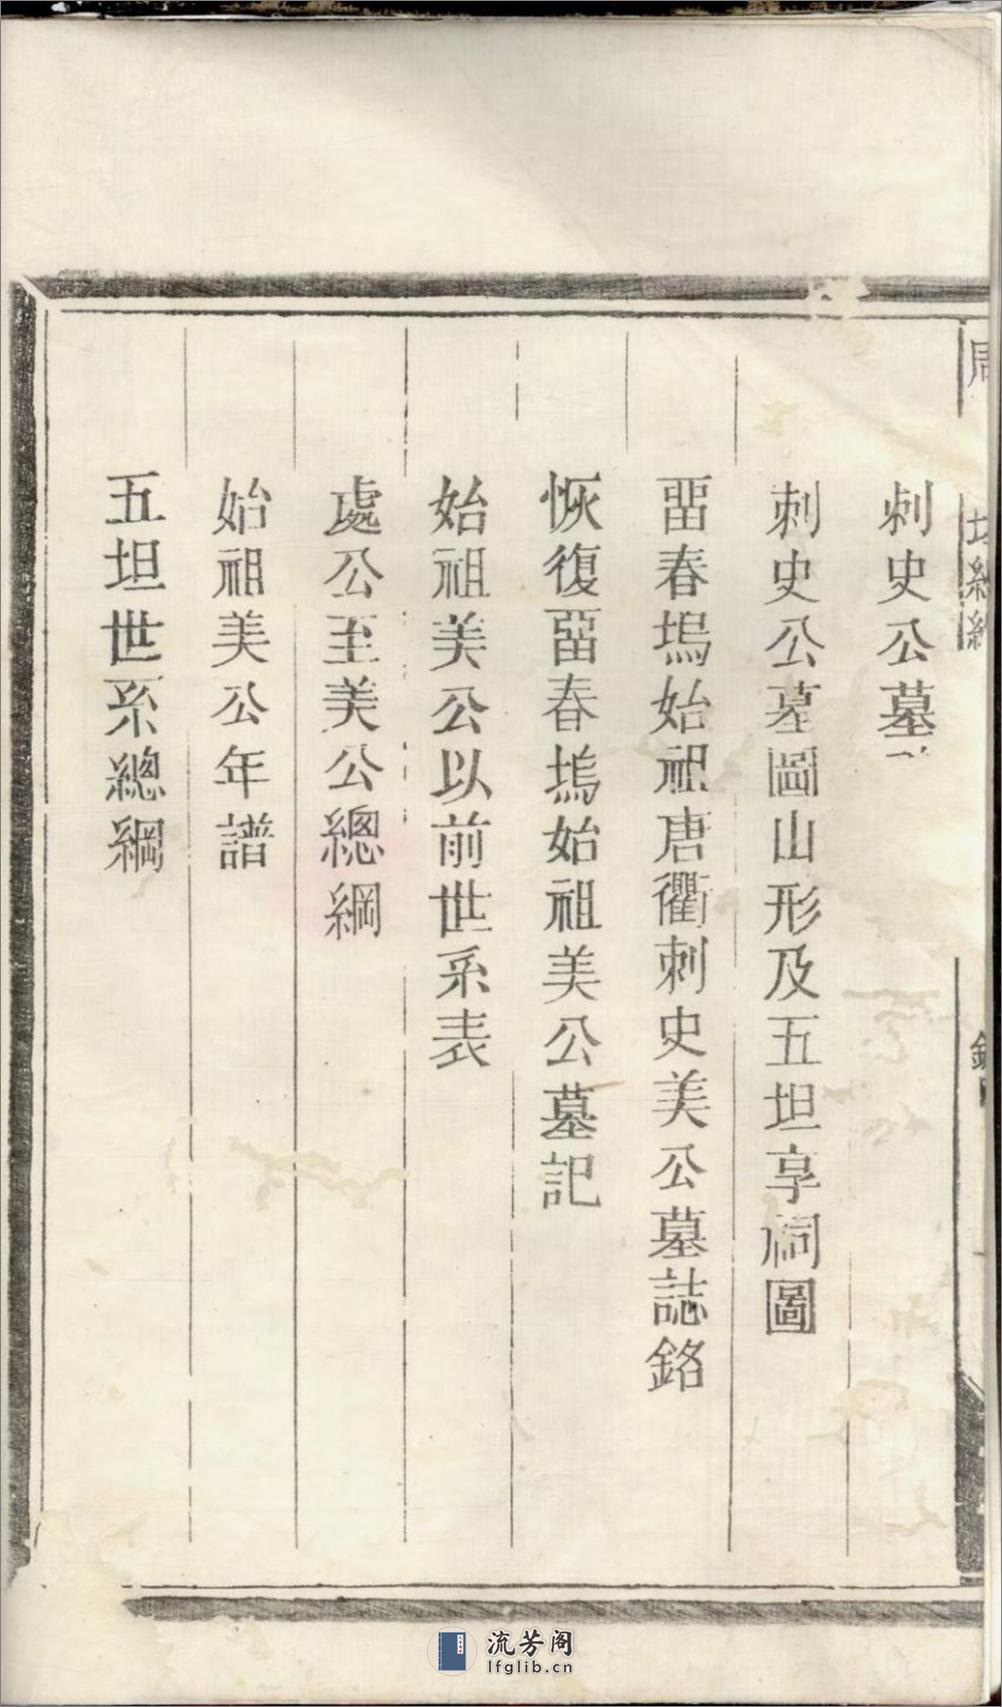 刺史公墓
刺史公墓圖山形及五坦享祠圖
畱春塢始祖唐衢刺史美公墓誌銘
恢復畱春塢始祖美公墓記
始祖美公以前世系表
處公至美公總綱
始祖美公年譜
五坦世系總綱
流芳阁
lfglib.cn